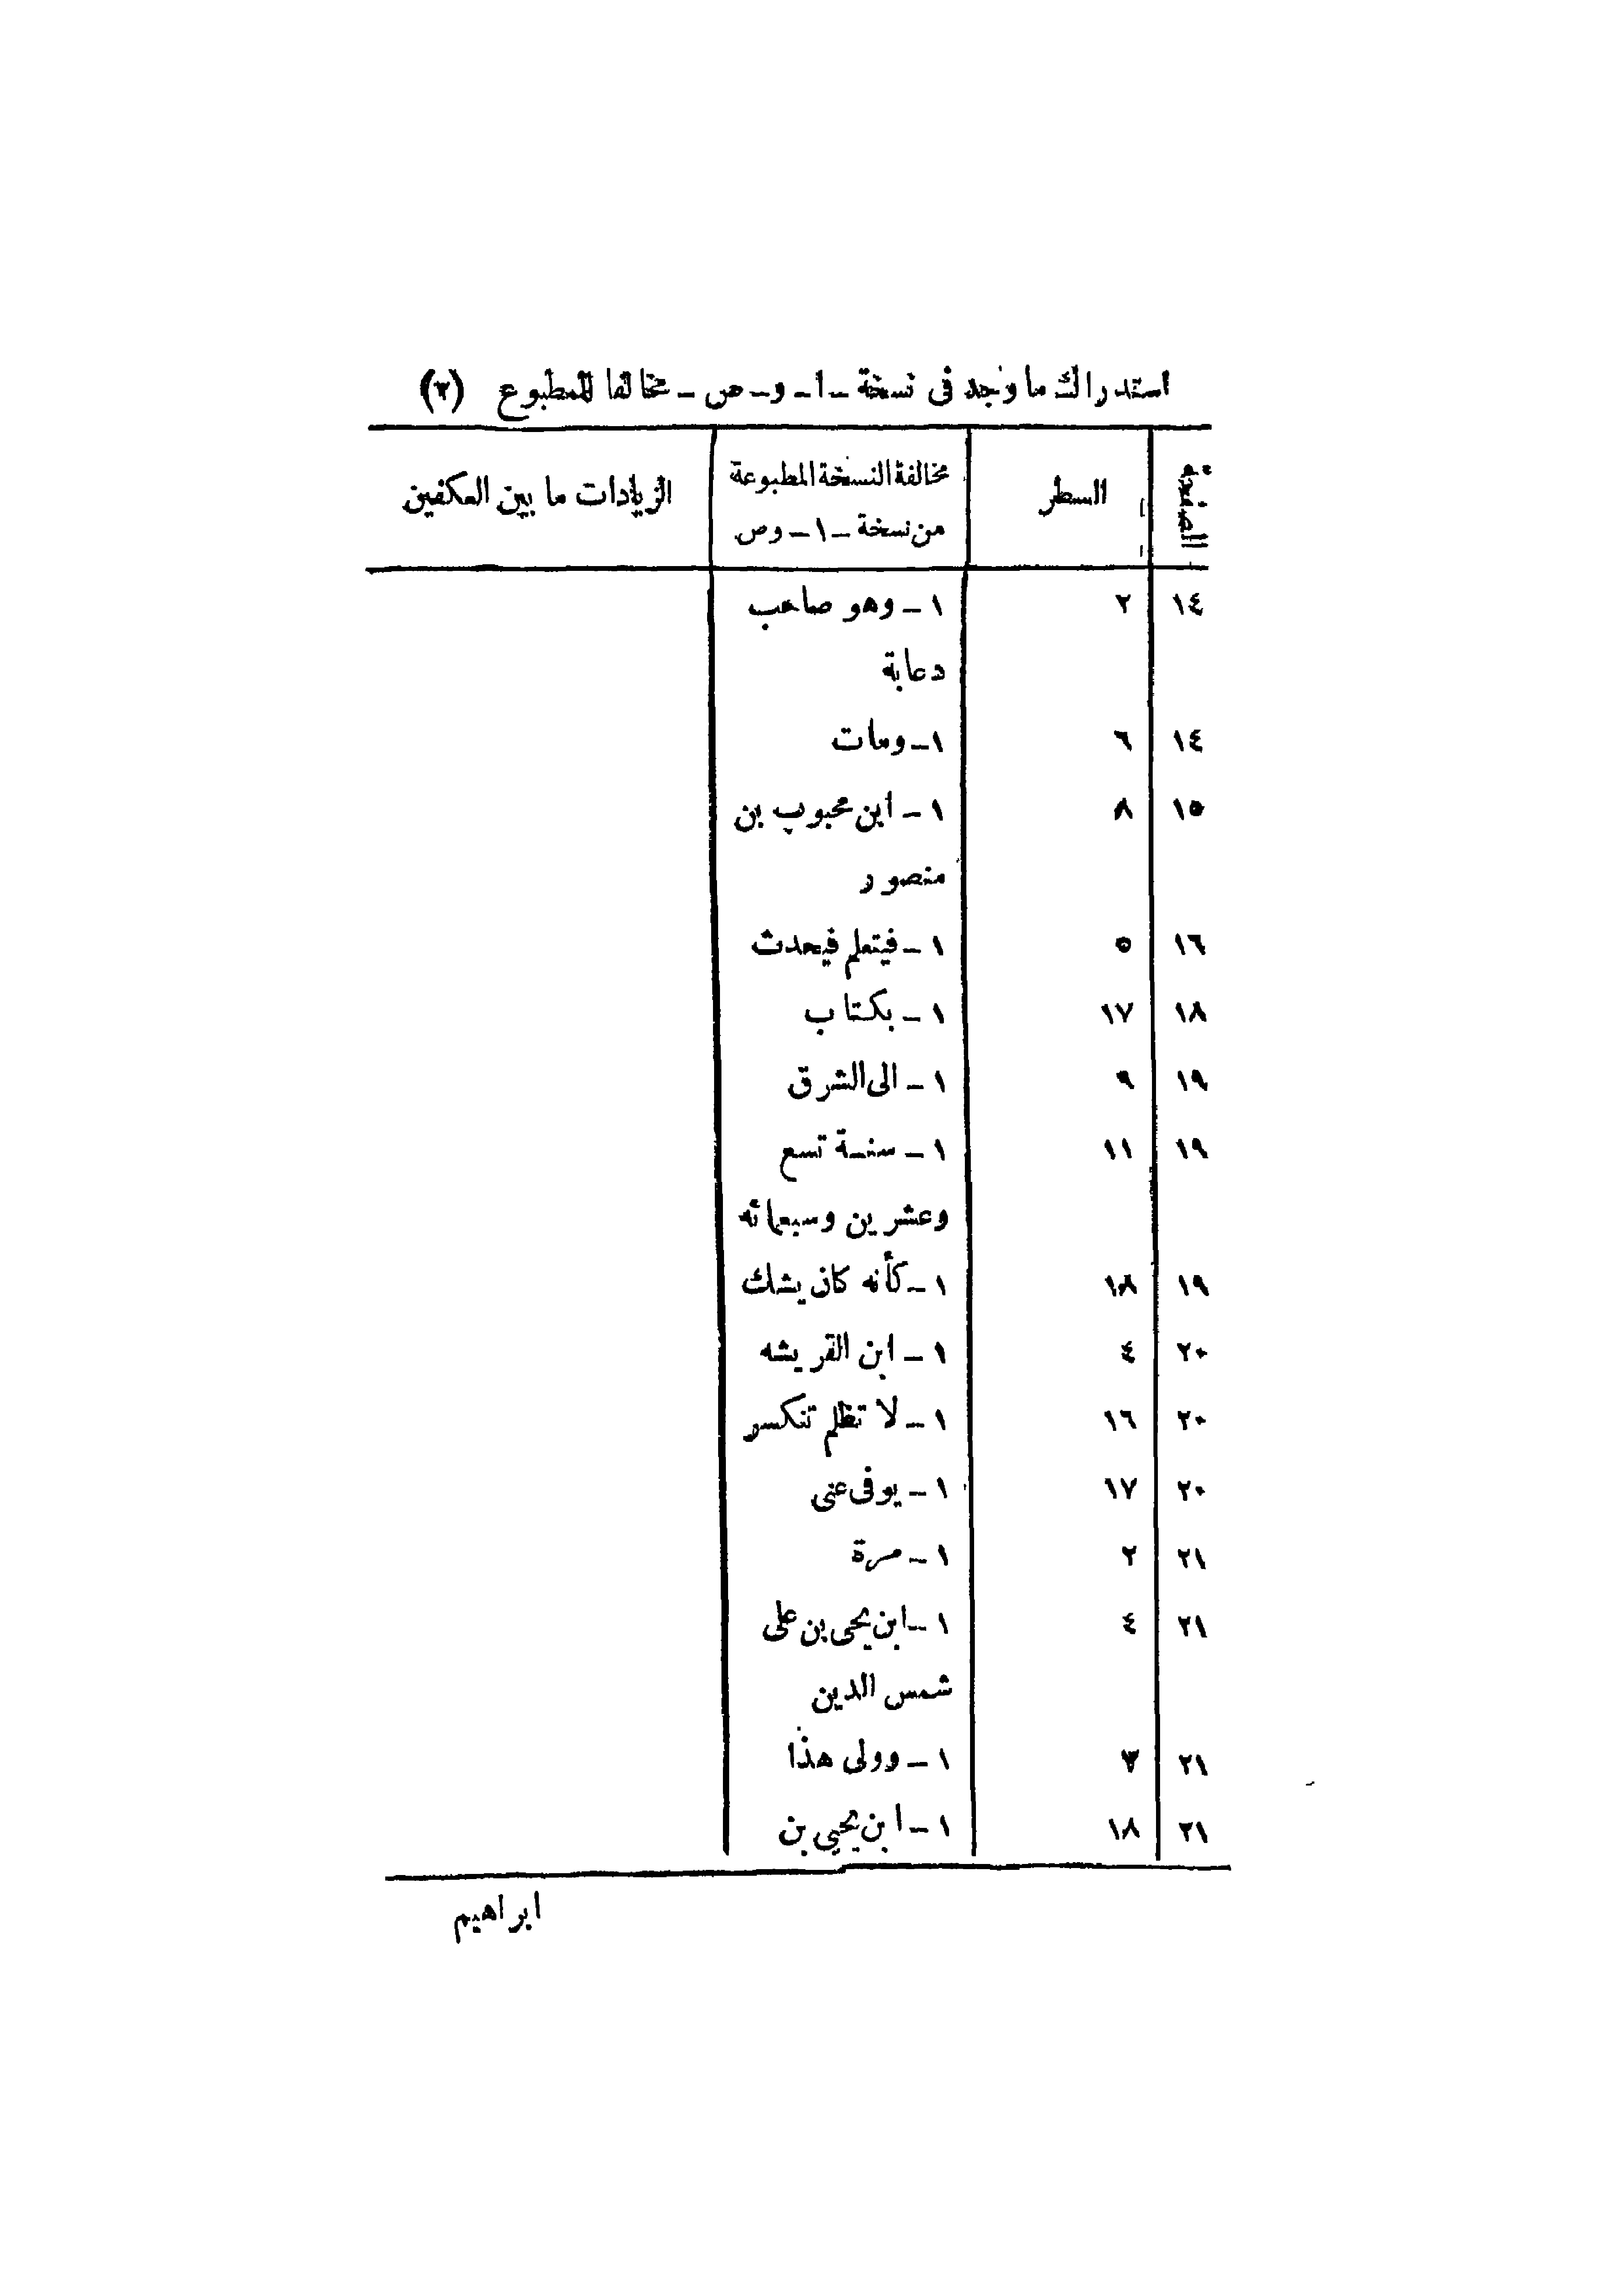 استدراك ما وجد فى نسخة - ا - و - ص - مخالفا للمطبوع (٣)
الصفحة السطر مخالفة النسخة المطبوعة الزيادات ما بين العكفين
من نسخة - ١ - وص
١٤ ٢ ١ - وهو صاحب
دعابة
١٤ ٦ ١ - ومات
١٥ ٨ ١ - ابن محبوب بن
منصور
١٦ ٥ ١ - فيتعلم فيحدث
١٨ ١٧ ١ - بكتاب
١٩ ٩ ١ - الى الشرق
١٩ ١١ ١ - سنة تسع
وعشرين وسبعمائه
١٩ ١٨ ١ - كأنه كان يشك
٢٠ ٤ ١ - ابن القريشه
٢٠ ١٦ ١ - لا تظلم تنكسر
٢٠ ١٧ ١ - يوفى عنى
٢١ ٢ ١ - مرة
٢١ ٤ ١ - ابن يحى بن على
شمس الدين
٢١ ٧ ١ - وولى هذا
٢١ ١٨ ١ - ابن يحيى بن
ابراهيم